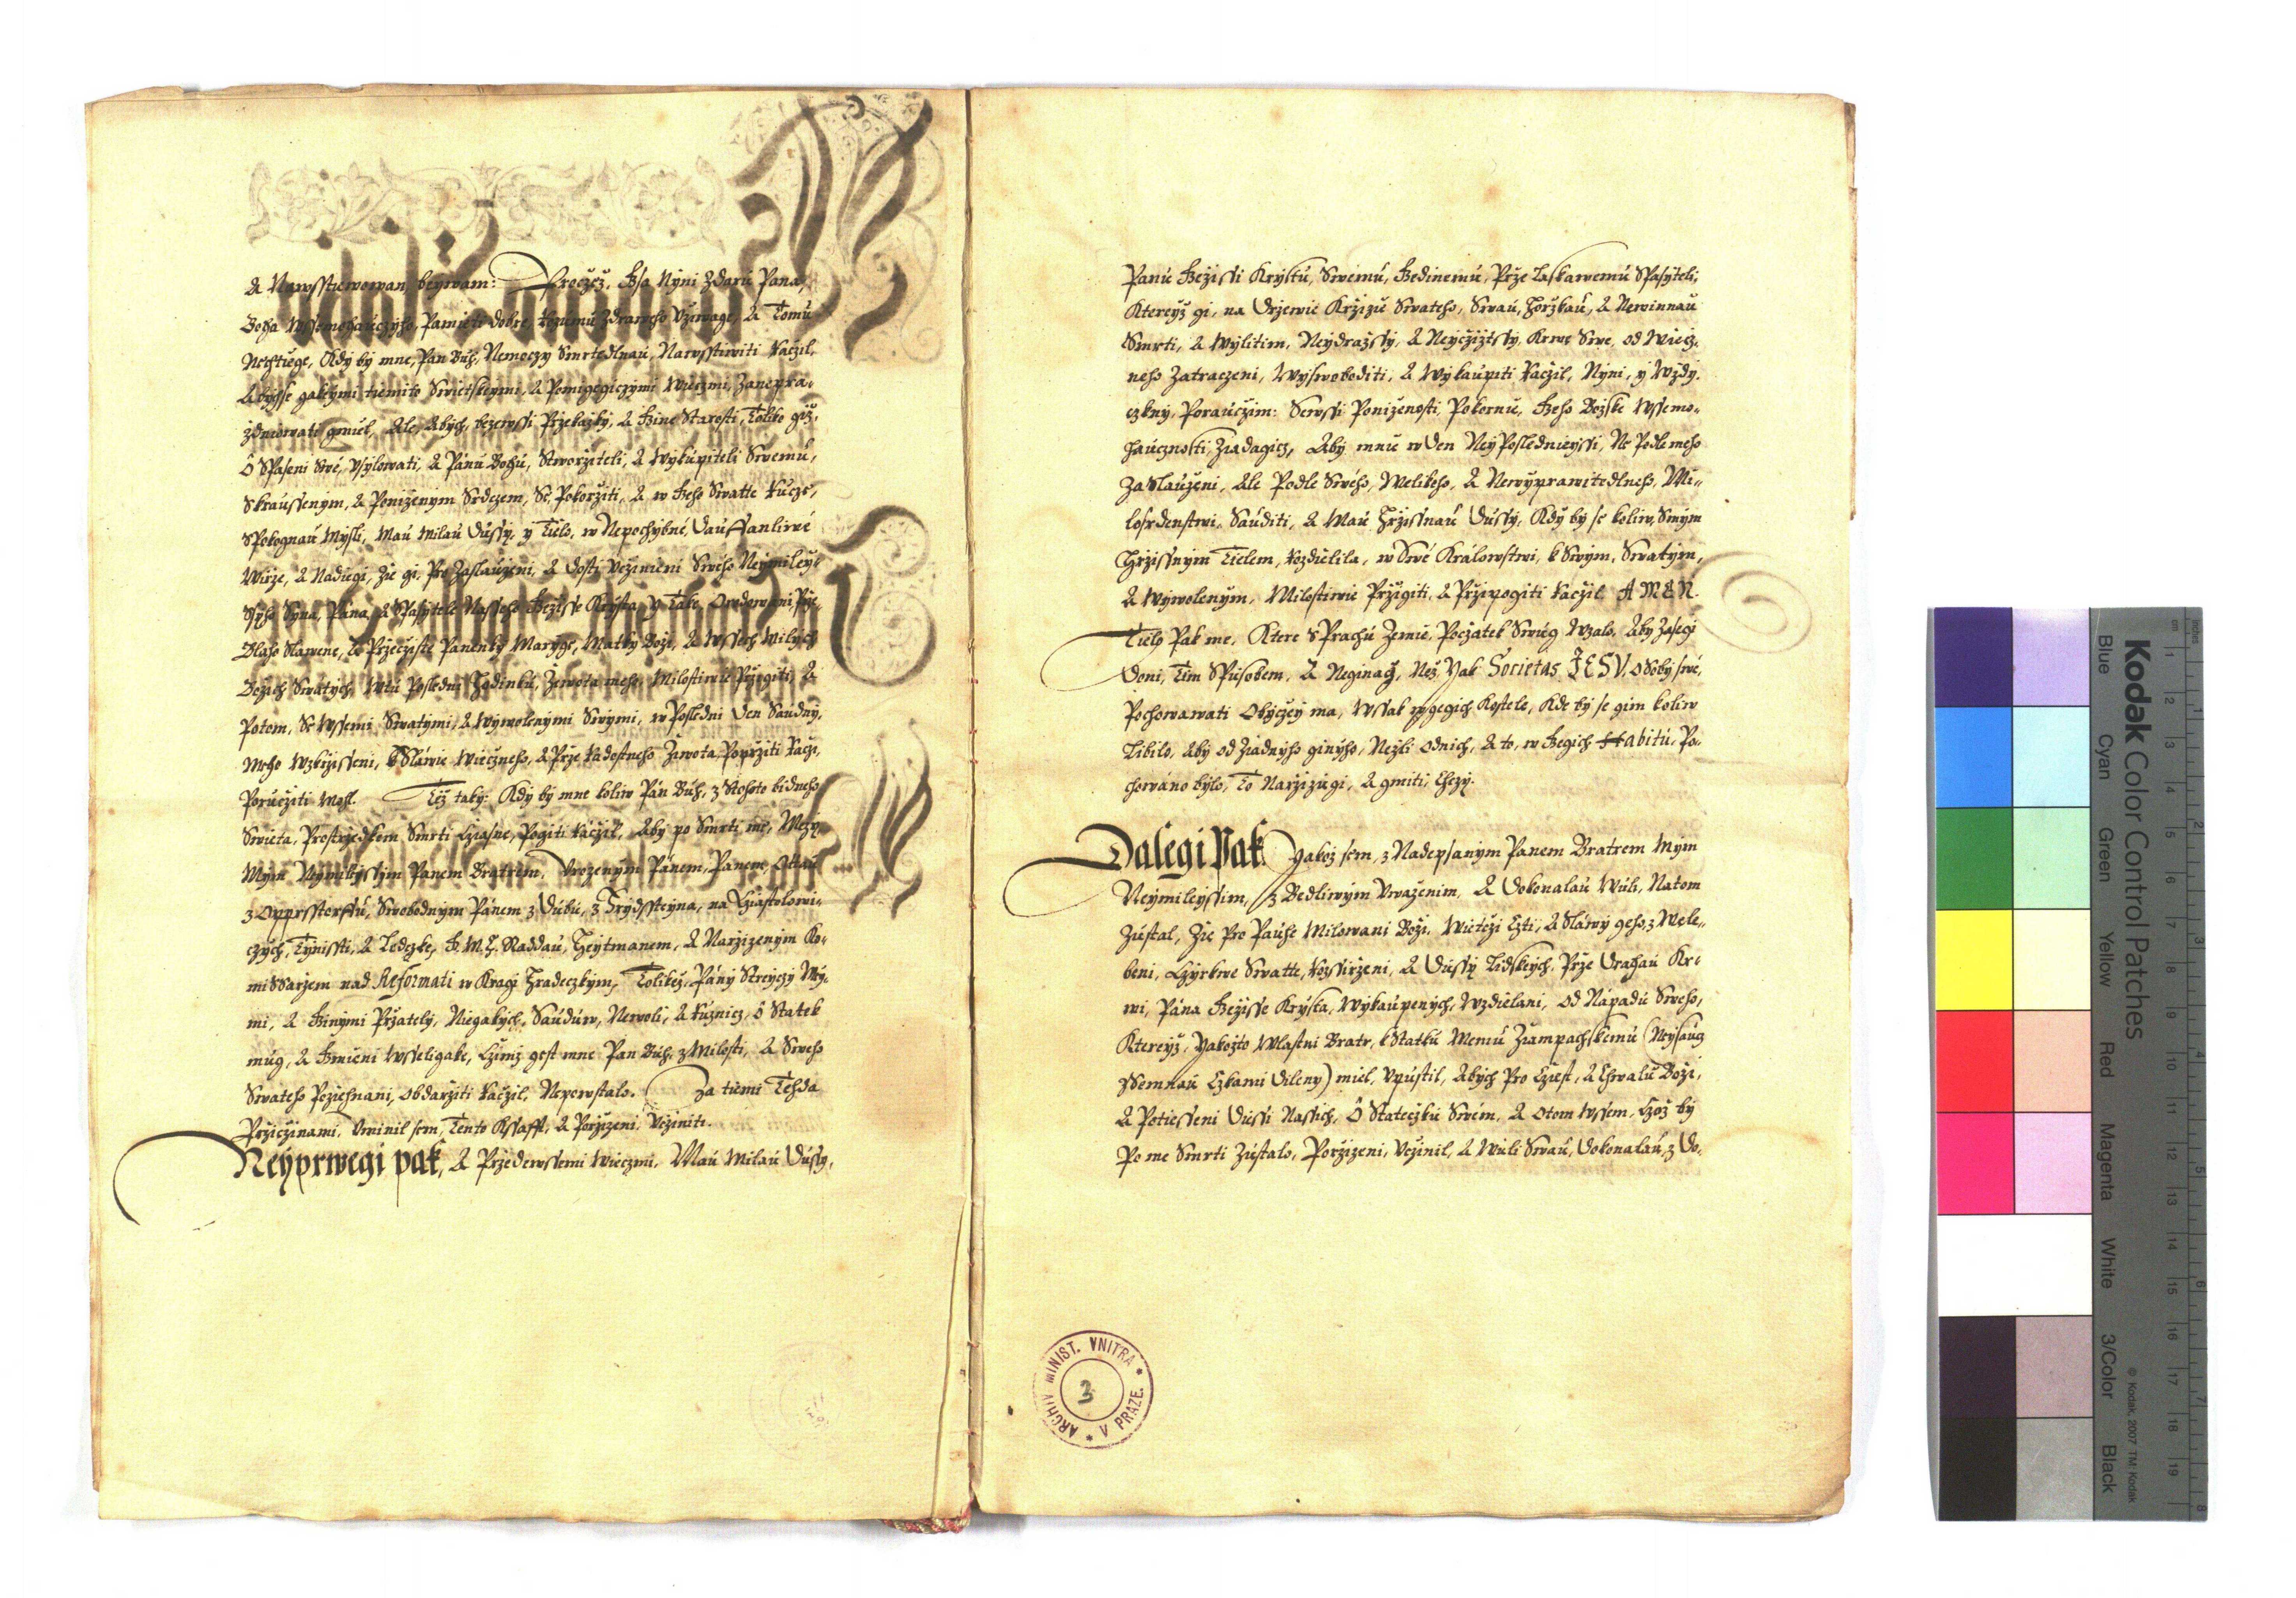 & Nawsstiewowan, beywam: Procžež, Jsa Nyni z daru Pana,
Boha Wssemohauczýho, Pamieti dobre, Rozumu Zdraweho Užiwage, & Tomu
Nechtiege, Kdy by mne, Pan Buh, Nemoczy Smrtedlnau, Nawsstiwiti Račzil,
Abychse gakymi tiemito Swietskeymi, & Pomigegiczymi Wieczmi, Zanepra-
zdniowati gmiel, Ale, Abych, bezewssi Przekažky, & Jine Starosti, Toliko giž,
O Spaseni Swe, Usylowati, & Pánu Bohu, Stworžiteli, & Wykupiteli Swemu,
Skraussenym, & Poniženym Srdczem, Se, Pokoržiti, & w Jeho Swatte Rucze,
Spokognau Mysli, Mau Milau Dussy, y Tielo, w Nepochybné, Dauffanliwé
Wirže, & Nadiegi, Zie gi, Pro Zaslauženi, & Dosti Učzinieni Swého Neymiley-
ssyho Syna, Pána, & Spasytele Nasseho Ježisse Krysta, y Take, Orodowani Pže-
Blaho Slawene, Te Pržečziste Panenky Marygi, Matky Boži, & Wssech Milych
Božich Swatych, Wtu Posledni Hodinku, Žiwota meho, Milostiwie Pržigiti, &
Potom, Se Wssemi Swatymi, & Wywolenymi Swymi, w Posledni Den Saudny,
Meho Wzkržisseni, k Sláwie Wiečzneho, & Prže Radostneho Žiwota, Popržiti Račzi,
Poručžiti Mohl. Též taky: Kdy by mne koliw Pán Bůh, z Tohoto bidneho
Swieta, Prostržedkem Smrti Cziasne, Pogiti Račzil, Aby po Smrti mé, Mezy
Mym Neymilegssym Panem Bratrem, Urozenym Pánem, Panem, Ottau
z Opprsstorffu, Swobodnym Pánem z Dubu, z Frydssteyna, na Cziastolowi-
czych, Teynissti, & Ledczke, J. M. C. Raddau, Heytmanem, & Naržizenym Ko-
missaržem nad Reformati w Kragi Hradeczkym, Tolikež, Pány Streyczy My-
mi, & Jinymi Pržately, Niegakych, Saudůw, Newoli, & Ruznicz, O Statek
můg, & Jmieni Wsseligake, Czimž gest mne Pan Buh, z Milosti, & Sweho
Swateho Požiehnani, obdaržiti Račžil, Nepowstalo. Za tiemi Tehda
Pržičžinami, Uminil sem, Tento Kssafft, & Poržizeni, Učžiniti.
Neyprwegi pak, & Pržedewssemi Wieczmi, Mau Milau Dussy,
Panu Ježissi Krystu, Swému, Jedinemu, Prže Laskawemu Spasyteli,
Ktereyž gi, na Drzewie Kržižie Swateho, Swau, Horžkau, & Newinnau
Smrti, & Wylitim, Neydražssy, & Neyčzistssy, Krwe Swe, od Wiecz-
neho Zatraczeni, Wyswoboditi, & Wykaupiti Račžil, Nyni, y Wzdy-
czkny, Poraučžim: Sewssi Poniženosti, Pokornie, Jeho Božske Wssemo-
haucznosti, Ziadagicz, Aby mnie w Den NeyPosledniegssi, Ne Podle meho
Zaslauženi, Ale Podle Swého, Welikeho, & Newyprawitedlneho, Mi-
losrdenstwi, Sauditi, & Mau Hržissnau Dussy, Kdy by se koliw, Smym
Hržissnym Tielem, Rozdielila, w Swé Králowstwi, k Swym, Swatym,
& Wywolenym, Milostiwie Pržigiti, & Pržipogiti Račžil. AMEN.
Tielo Pak me, Ktere s Prachu Zemie, Počžatek Swug Wzalo, Aby zasegi
Doni, Tim Spusobem, & Neginacž, Než Yak Societas JESV, Osoby swé,
Pochowawati Obyčžey ma, Wssak w gegich Kostele, Kde by se gim koliw
Libilo, Aby od Ziadnyho ginyho, Nežli od nich, & to, w Jegich Habitu, Po-
chowáno bylo, To Naržizugi, & gmiti Chczy.
Dalegi Pak Yakož sem, z Nadepsanym Panem Bratrem Mym
Neymileyssim, z Bedliwym Uwaženim, & Dokonalau Wuli, Natom
Zustal, Zie Pro Pauhe Milowani Boži, Wietčži Czti, & Sláwy geho, z Wele-
beni, Czyrkwe Swatte, Rozssirženi, & Dussy Lidskeych, Prže Drahau Kr-
wi, Pána Ježisse Krysta, Wykaupenych, Wzdielani, od Nápadu Sweho,
Ktereyž, Yakožto Wlastni Bratr, k Statku Memu Ziampachskemu (Neysaucz
Zemnau Czkami dileny) miel, Upustil, Abych Pro Cziest, & Chwalu Boži,
& Potiesseni Dussi Nassich, O Statečzku Swém, & Otom Wssem, Czož by
Po me Smrti Zustalo, Poržizeni, Učžinil, & Wuli Swau, Dokonalau, z Do-
ARCHIV MINIST. VNITRA * V PRAZE. *
3
Kodak Color Control Patches
© Kodak, 2007 TM: Kodak
Blue Cyan Green Yellow Red Magenta White 3/Color Black
cm 1 2 3 4 5 6 7 8 9 10 11 12 13 14 15 16 17 18 19
inches 1 2 3 4 5 6 7 8